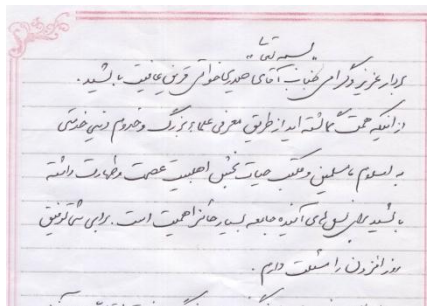 بسمه تعالی
برادر عزیز و گرامی جناب آقای حیدری خوانی قرین عافیت باشید.
از اینکه همت گماشته اید از طریق معرفی علماء بزرگ و خدوم دینی خدمتی
به اسلام و مسلمین و مکتب حیات بخش اهلبیت عصمت و طهارت داشته
باشید برای نسل های آینده جامعه بسیار حائز اهمیت است. برای شما توفیق
روز افزون را مسئلت دارم.